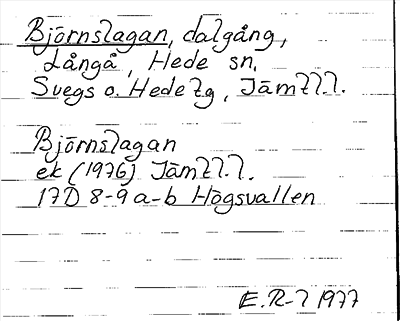 Björnslagan, dalgång,
Långå, Hede sn,
Svegs o. Hede tg, Jämtl.l.
Björnslagan
ek (1976) Jämtl.l.
17D 8-9 a-b Högsvallen
E.R-l 1977